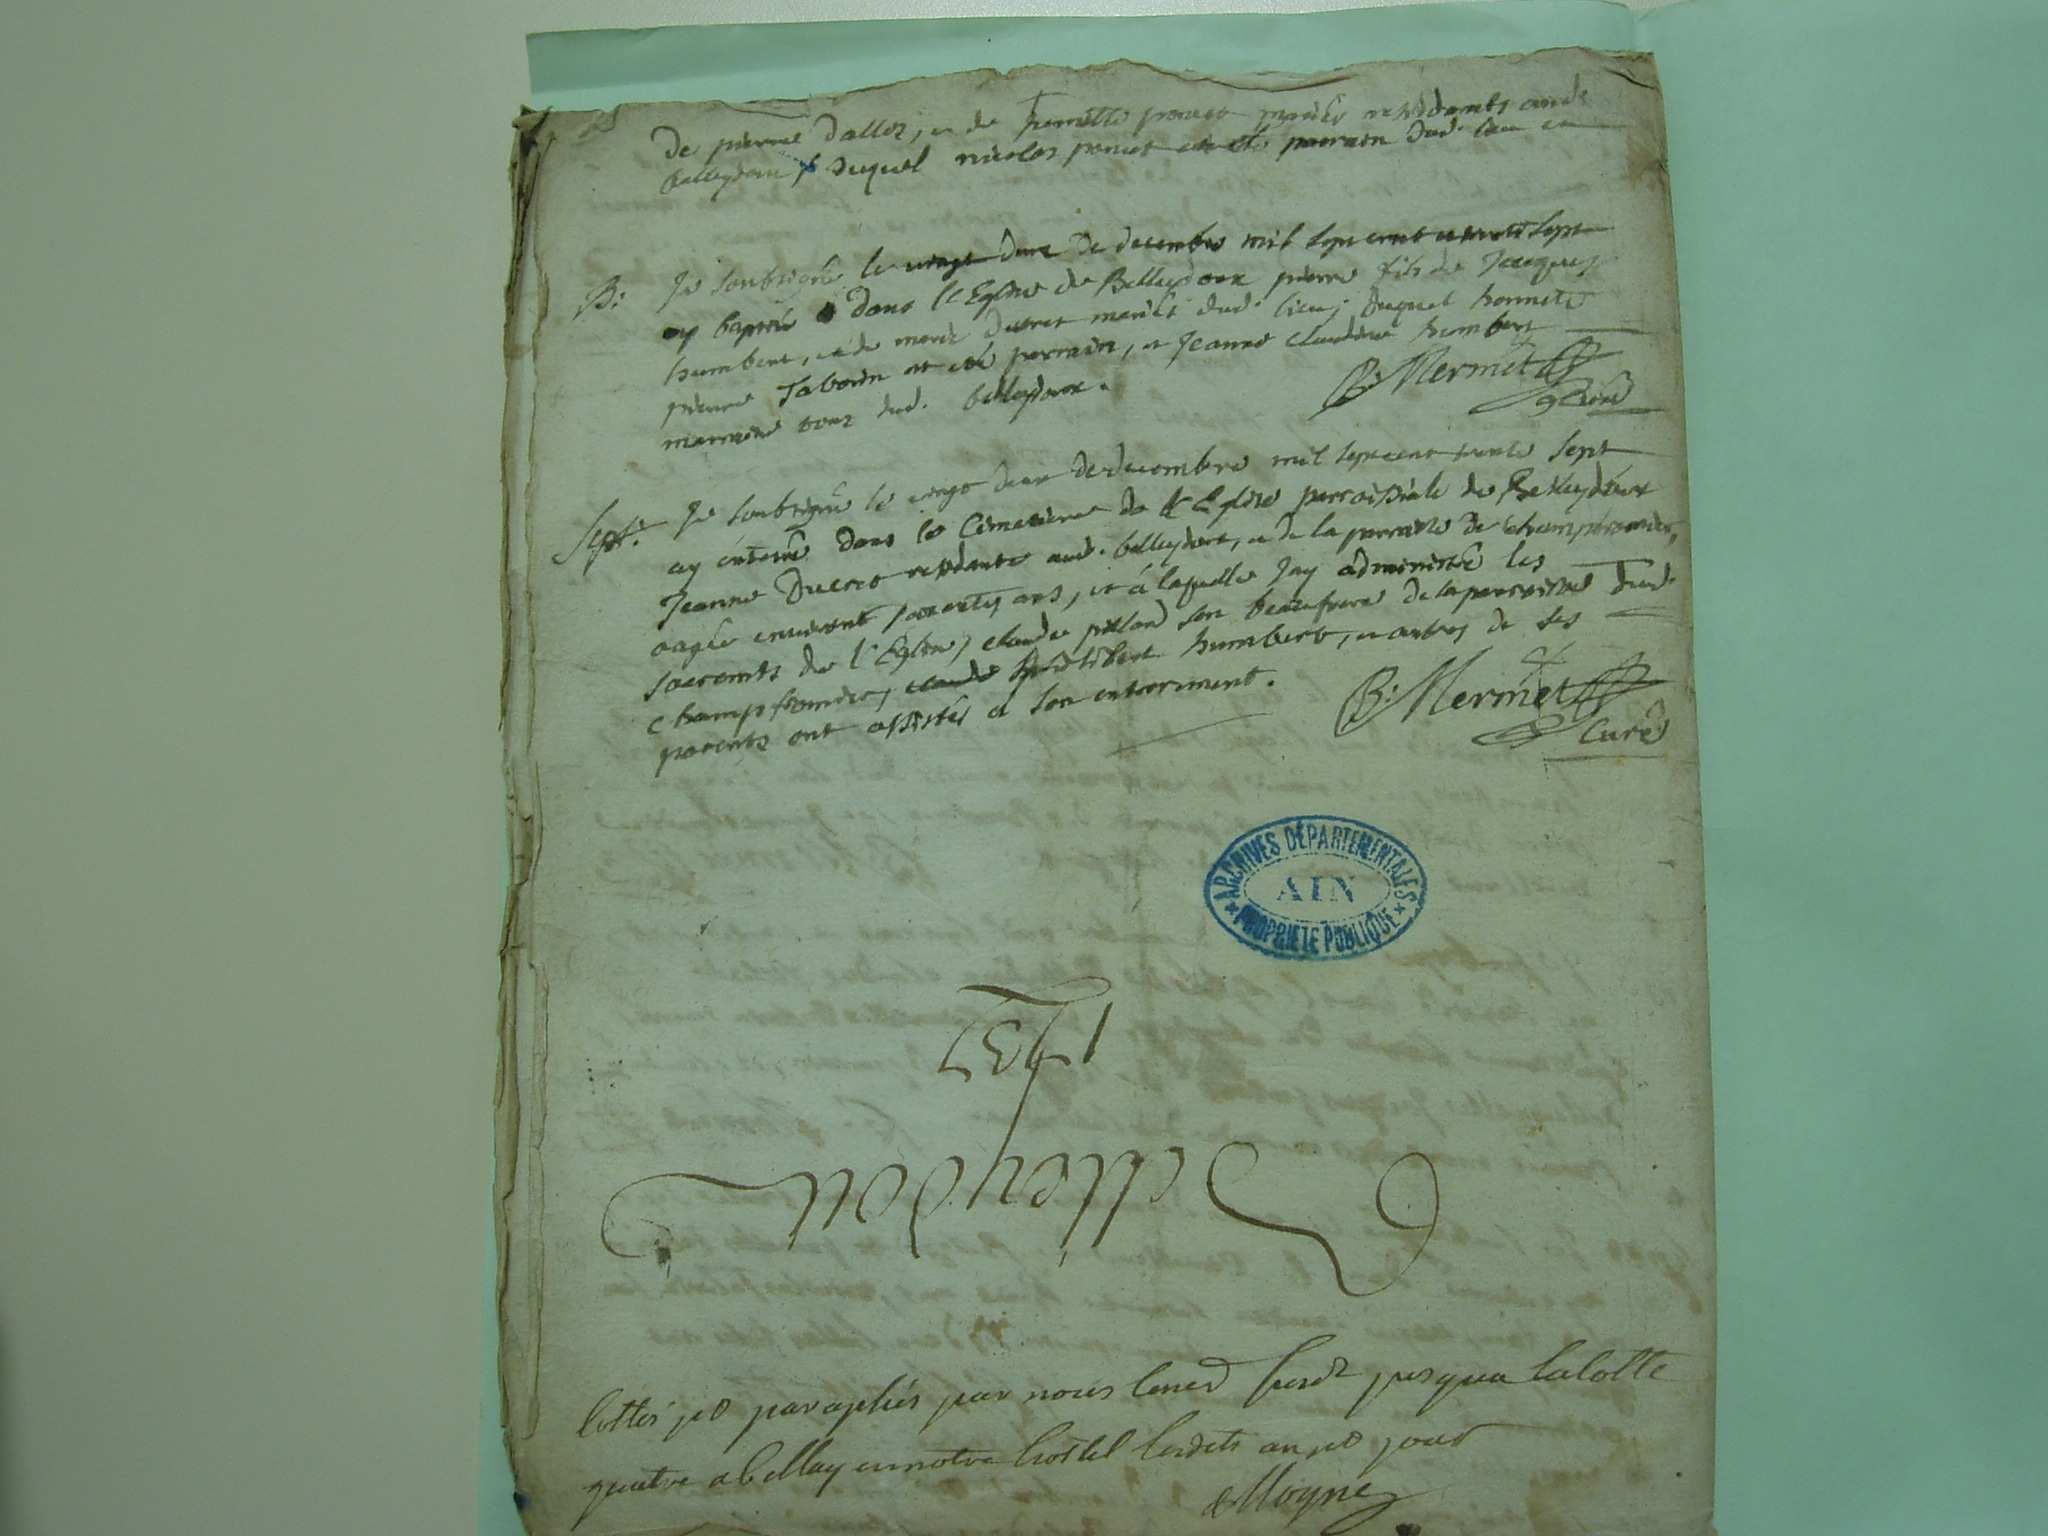 De pierre Dalloz, et de pernette poncet mariés residants aud.
belleydoux duquel nicolas poncet a été parrain dud. lieu et
B: Je soubsigné le vingt deux De decembre mil sept cent trente sept
ay baptisé dans l'Eglise de Belleydoux pierre fils de Jacques
humbert, et de marie Ducret mariés dud. lieu; Duquel honneste
pierre Tabouin at eté parrain, et Jeanne claudine humbert
marraine tous dud. belleydoux.
B: Mermet
Curé
Sept. Je soubsigné le vingt deux de decembre mil sept cent trente sept
ay enterré dans le Cimetierre de l'Eglise parroissiale de Belleydoux
Jeanne Ducret residante aud. belleydoux, et de la parroisse de champfromier,
aagée environt soixante ans, et à laquelle Jay administré les
sacremts de l'Eglise, claude pilland son beaufrere de la parroisse dud.
champfromier, claude philibert humbert, et autres de ses
parents ont assistés a son enterrement.
B: Mermet
Curé
ARCHIVES DÉPARTEMENTALES
AIN
PROPRIÉTÉ PUBLIQUE
1737
Belleydou
Cottés et paraphés par nous jusqua la cotte
quatre a bellay en notre hostel lesdits an et jour